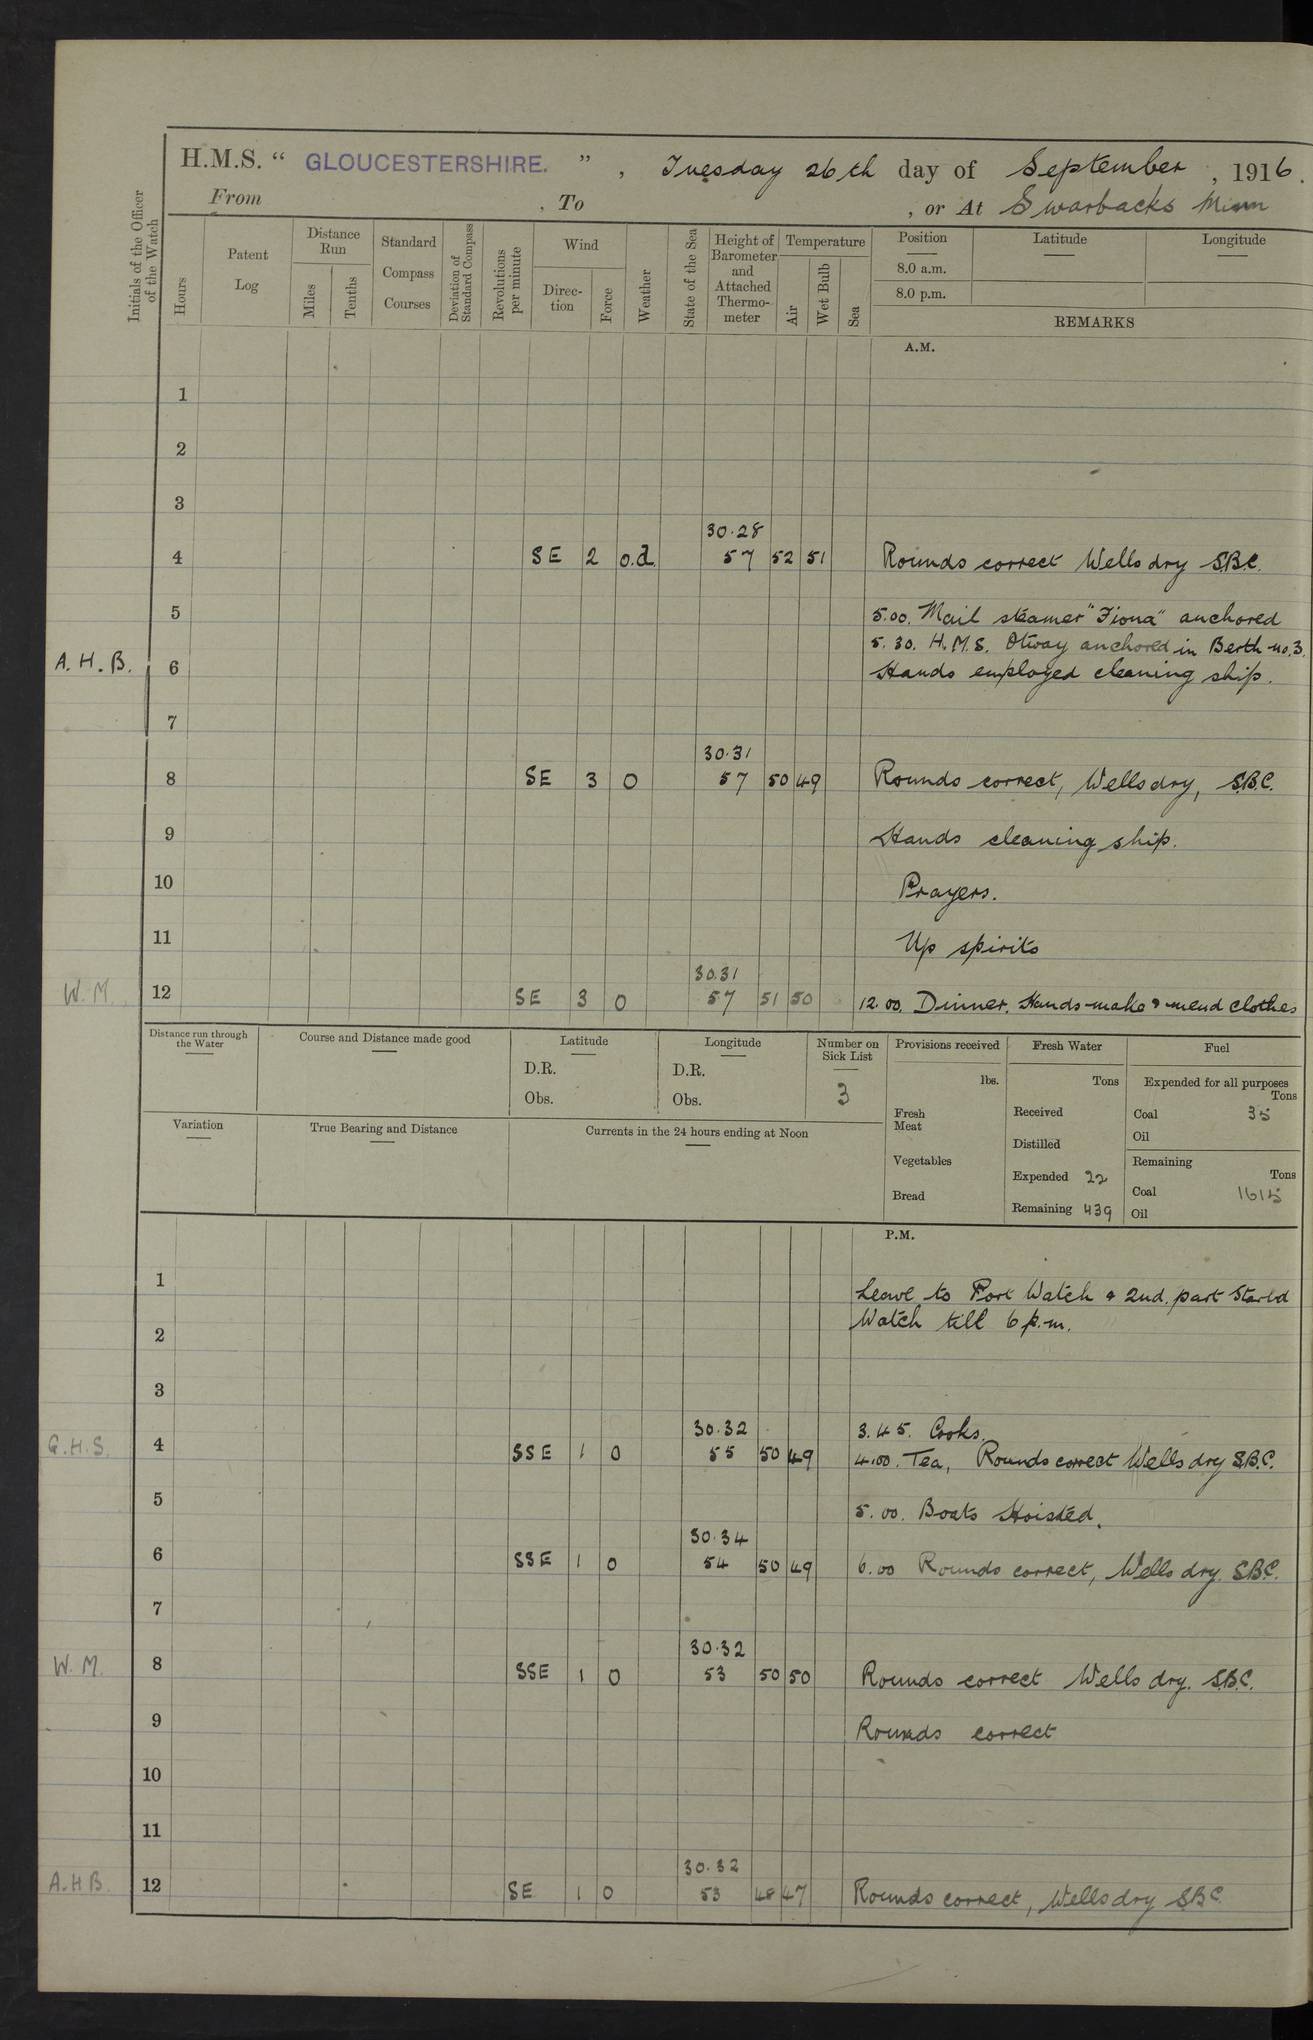 H.M.S. " GLOUCESTERSHIRE. " , Tuesday 26th day of September , 1916.
From , To , or At Swarbacks Minn
Initials of the Officer of the Watch
Hours
Patent Log
Distance Run
Miles
Tenths
Standard Compass Courses
Deviation of Standard Compass
Revolutions per minute
Wind
Direction
Force
Weather
State of the Sea
Height of Barometer and Attached Thermometer
Temperature
Air
Wet Bulb
Sea
Position Latitude Longitude
8.0 a.m.
8.0 p.m.
REMARKS
A.M.
1
2
3
30.28
4 SE 2 o.d. 57 52 51 Rounds correct Wells dry S.B.C.
5 5.00. Mail steamer "Fiona" anchored
5.30. H.M.S. Otway anchored in Berth no.3.
A.H.B. 6 Hands employed cleaning ship.
7
30.31
8 SE 3 0 57 50 49 Rounds correct, Wells dry, S.B.C.
9 Hands cleaning ship.
10 Prayers.
11 Up spirits
30.31
W.M. 12 SE 3 0 57 51 50 12.00. Dinner. Hands make & mend clothes
Distance run through the Water
Course and Distance made good
Latitude
D.R.
Obs.
Longitude
D.R.
Obs.
Number on Sick List
3
Provisions received
lbs.
Fresh Meat
Vegetables
Bread
Fresh Water
Tons
Received
Distilled
Expended 22
Remaining 439
Fuel
Expended for all purposes
Tons
Coal 35
Oil
Remaining
Tons
Coal 1615
Oil
Variation
True Bearing and Distance
Currents in the 24 hours ending at Noon
P.M.
1 Leave to Port Watch & 2nd. part Starbd
2 Watch till 6 p.m.
3
30.32 3.45. Cooks.
G.H.S. 4 SSE 1 0 55 50 49 4.00. Tea, Rounds correct Wells dry S.B.C.
5 5.00. Boats Hoisted.
30.34
6 SSE 1 0 54 50 49 6.00 Rounds correct, Wells dry. S.B.C.
7
30.32
W.M. 8 SSE 1 0 53 50 50 Rounds correct Wells dry. S.B.C.
9 Rounds correct
10
11
30.32
A.H.B. 12 SE 1 0 53 48 47 Rounds correct, Wells dry S.B.C.